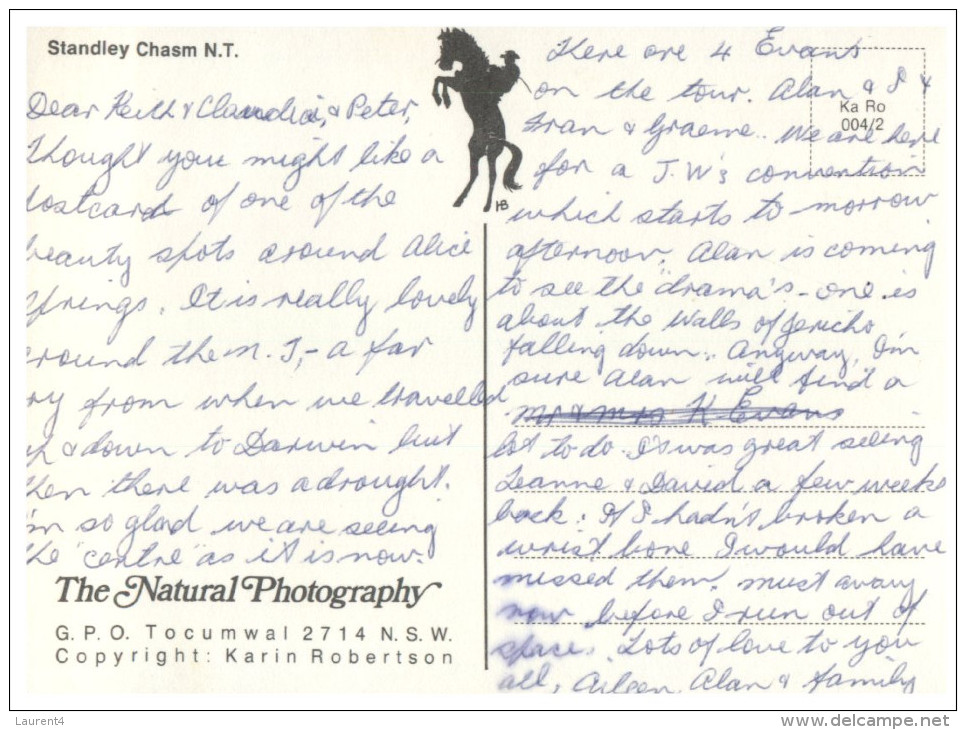 Standley Chasm N.T.
Dear Keith & Claudia, & Peter,
Thought you might like a
postcard of one of the
beauty spots around Alice
Springs. It is really lovely
around the N.T, - a far
cry from when we travelled
up & down to Darwin but
then there was a drought.
I'm so glad we are seeing
the "centre" as it is now.
The Natural Photography
G. P. O. Tocumwal 2714 N. S. W.
Copyright: Karin Robertson
HB
Ka Ro
004/2
There are 4 Evans
on the tour. Alan & I &
Fran & Graeme. We are here
for a J.W's convention
which starts to-morrow
afternoon. Alan is coming
to see the "drama's - one is
about the Walls of Jericho
falling down. Anyway, I'm
sure Alan will find a
Mr & Mrs K Evans
lot to do. It was great seeing
Leanne & David a few weeks
back. If I hadn't broken a
wrist bone I would have
missed them. must away
now before I run out of
space. Lots of love to you
all, Aileen, Alan & family
Laurent4
www.delcampe.net